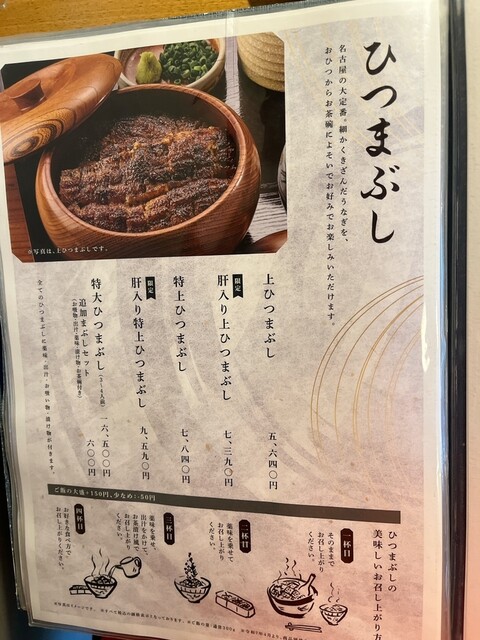 ひつまぶし
名古屋の大定番。細かくきざんだうなぎを、
おひつからお茶碗によそいでお好みでお楽しみいただけます。
※写真は、上ひつまぶしです。
上ひつまぶし 五、六四〇円
限定 肝入り上ひつまぶし 七、三九〇円
特上ひつまぶし 七、八四〇円
限定 肝入り特上ひつまぶし 九、五九〇円
特大ひつまぶし(3〜4人前) 一六、五〇〇円
追加まぶしセット 六〇〇円
(お吸物・出汁・薬味・漬け物・お茶碗付き)
全てのひつまぶしに薬味・出汁・お吸い物・漬け物が付きます。
ご飯の大盛+150円、少なめ:-50円
ひつまぶしの
美味しいお召し上がり方
一杯目
そのままで
お召し上がり
ください。
二杯目
薬味を乗せて
お召し上がり
ください。
三杯目
薬味を乗せ、
出汁をかけて、
お茶漬け風で
お召し上がり
ください。
四杯目
お好きな食べ方で、
お召し上がりください。